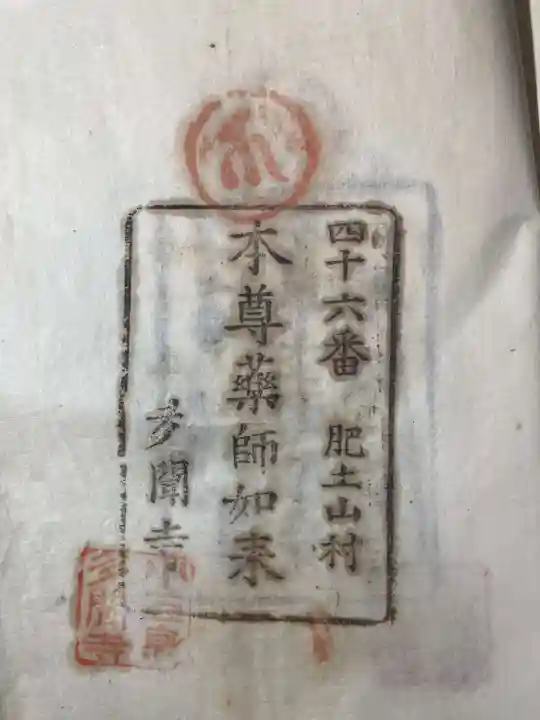 四十六番 肥土山村
本尊薬師如来
多聞寺
多聞寺